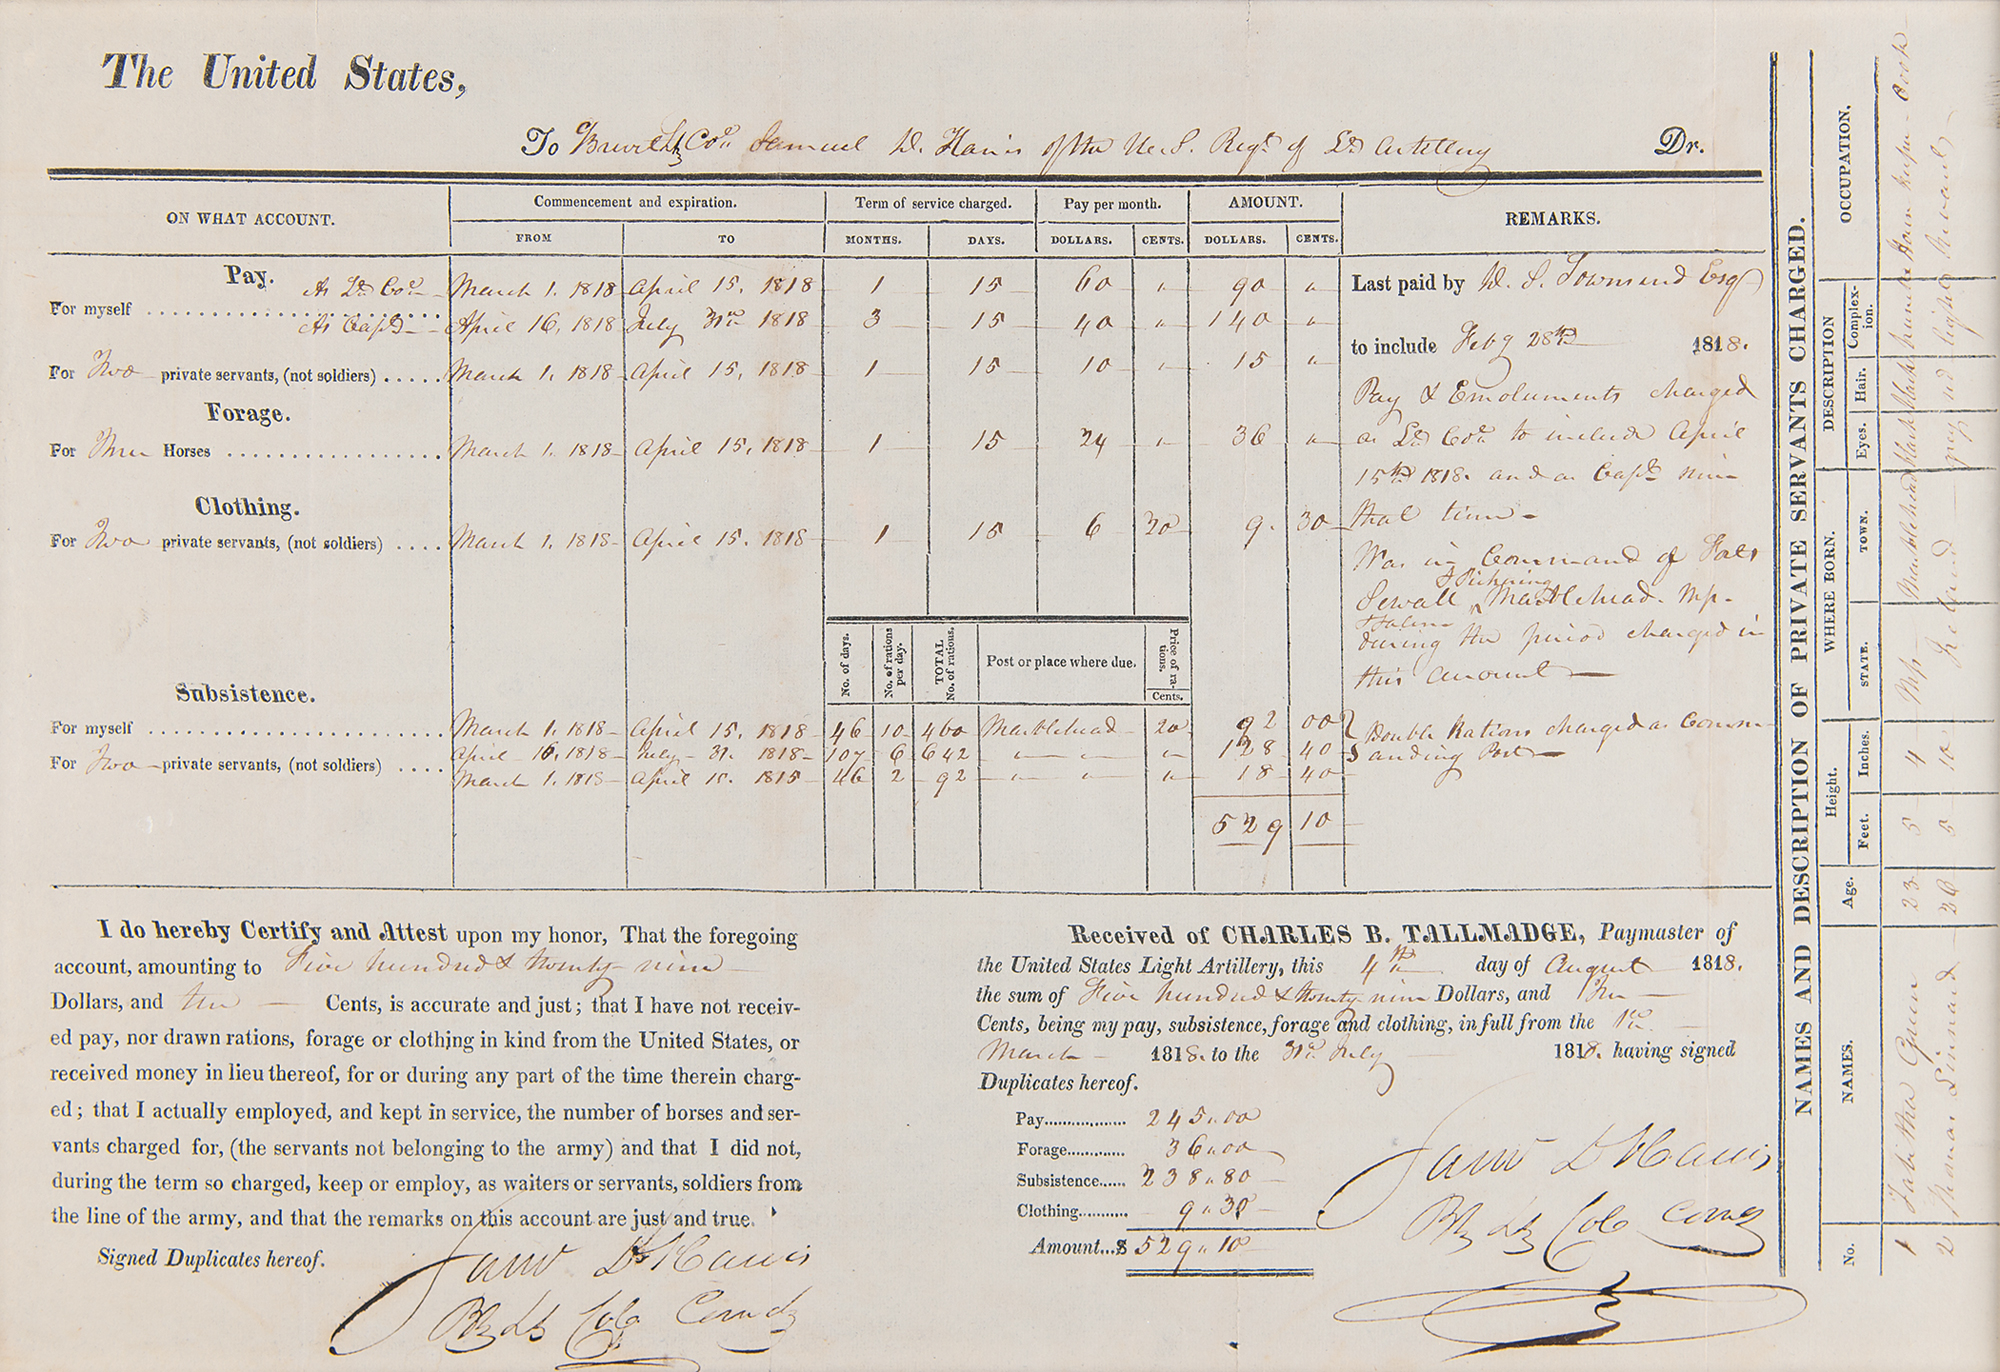 The United States,
To Brevet Lt Col. Samuel D. Harris of the U.S. Regt. of Lt. Artillery Dr.
ON WHAT ACCOUNT.
Commencement and expiration.
Term of service charged.
Pay per month.
AMOUNT.
REMARKS.
FROM TO MONTHS. DAYS. DOLLARS. CENTS. DOLLARS. CENTS.
Pay.
As Lt. Col. March 1. 1818 April 15. 1818 1 15 60 " 90 "
For myself
As Capt. April 16. 1818 July 31st 1818 3 15 40 " 140 "
For Two private servants, (not soldiers) March 1. 1818 April 15. 1818 1 15 10 " 15 "
Forage.
For Three Horses March 1. 1818 April 15. 1818 1 15 24 " 36 "
Clothing.
For Two private servants, (not soldiers) March 1. 1818 April 15. 1818 1 15 6 20 9. 30
Last paid by D. S. Townsend Esq
to include Feby 28th 1818.
Pay & Emoluments charged
as Lt. Col. to include April
15th 1818. and as Capt. since
that time
Was in Command of Forts
Sewall & Pickering Marblehead. Ms.
& Salem
during the period charged in
this amount
No. of days.
No. of rations per day.
TOTAL No. of rations.
Post or place where due.
Price of rations.
Cents.
Subsistence.
For myself March 1. 1818 April 15. 1818 46 10 460 Marblehead 20 92 00
April 16. 1818 July 31. 1818 107 6 642 " " " 128 40
For Two private servants, (not soldiers) March 1. 1818 April 15. 1818 46 2 92 " " " 18 40
Double Rations charged as Comm-
anding Post
529 10
I do hereby Certify and Attest upon my honor, That the foregoing
account, amounting to Five hundred & twenty nine
Dollars, and ten Cents, is accurate and just; that I have not receiv-
ed pay, nor drawn rations, forage or clothing in kind from the United States, or
received money in lieu thereof, for or during any part of the time therein charg-
ed; that I actually employed, and kept in service, the number of horses and ser-
vants charged for, (the servants not belonging to the army) and that I did not,
during the term so charged, keep or employ, as waiters or servants, soldiers from
the line of the army, and that the remarks on this account are just and true.
Signed Duplicates hereof.
Saml D Harris
Bt Lt Col Comdg
Received of CHARLES B. TALLMADGE, Paymaster of
the United States Light Artillery, this 4th day of August 1818.
the sum of Five hundred & twenty nine Dollars, and Ten
Cents, being my pay, subsistence, forage and clothing, in full from the 1st
March 1818. to the 31st July 1818. having signed
Duplicates hereof.
Pay 245.00
Forage 36.00
Subsistence 238.80
Clothing 9.30
Amount...$ 529.10
Saml D Harris
Bt Lt Col Comdg
NAMES AND DESCRIPTION OF PRIVATE SERVANTS CHARGED.
No. NAMES. Age. Height. Feet. Inches. WHERE BORN. STATE. TOWN. DESCRIPTION Eyes. Hair. Complexion. OCCUPATION.
1 Tabitha Green 23 5 4 Ms Marblehead black black House keeper Cook
2 Thomas Sinnard 26 5 10 Ireland grey red light Servant